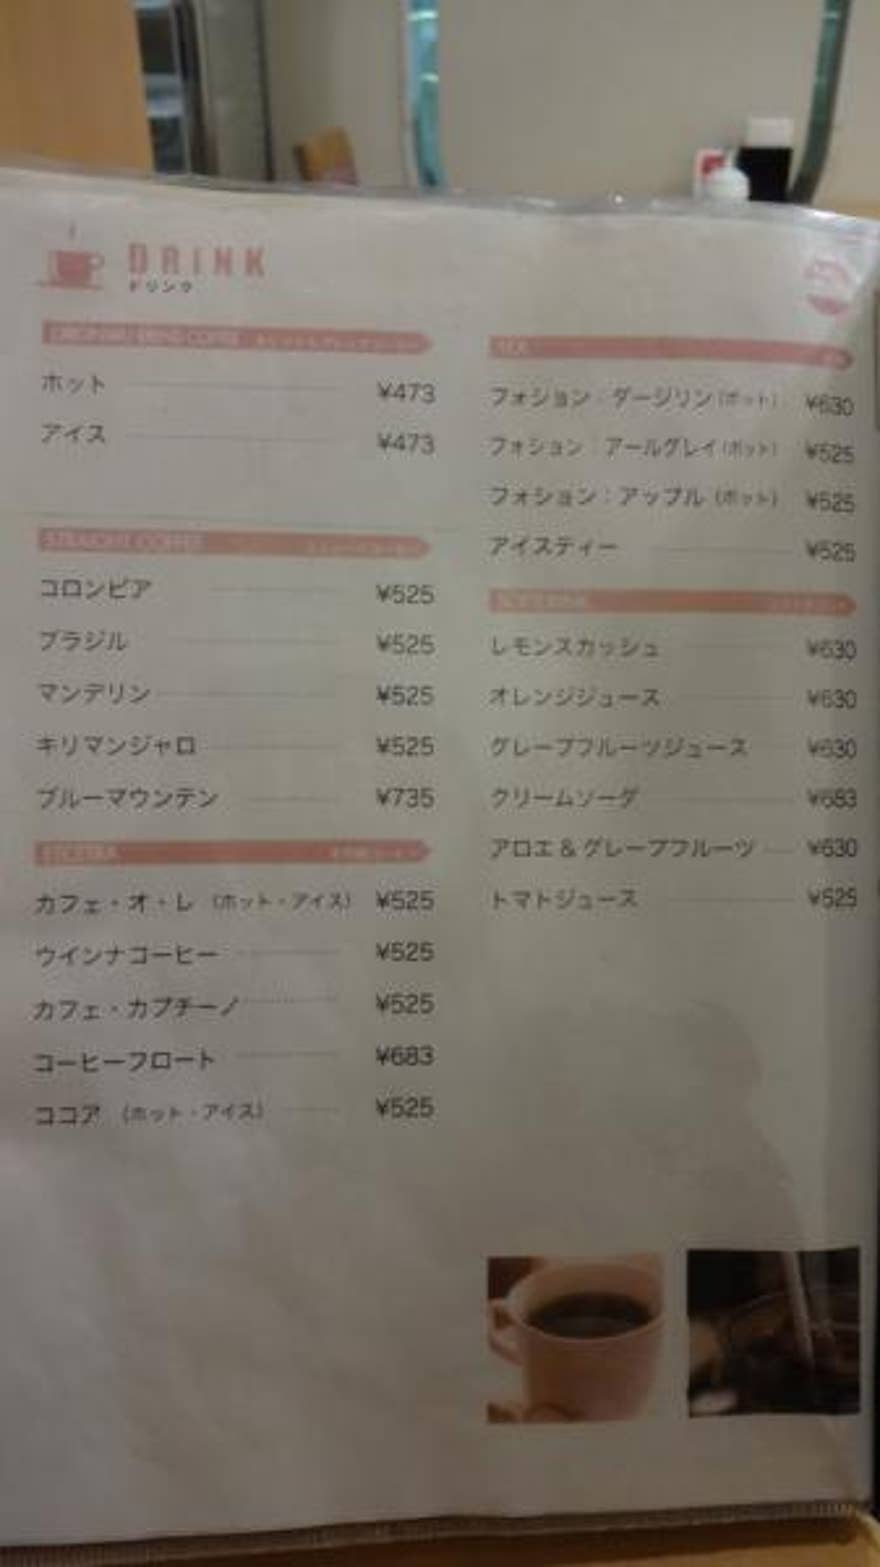 DRINK
ドリンク
ORIGINAL BLEND COFFEE オリジナルブレンドコーヒー
ホット ¥473
アイス ¥473
STRAIGHT COFFEE ストレートコーヒー
コロンビア ¥525
ブラジル ¥525
マンデリン ¥525
キリマンジャロ ¥525
ブルーマウンテン ¥735
カフェ・オ・レ (ホット・アイス) ¥525
ウインナコーヒー ¥525
カフェ・カプチーノ ¥525
コーヒーフロート ¥683
ココア (ホット・アイス) ¥525
TEA
フォション:ダージリン(ホット) ¥630
フォション:アールグレイ(ホット) ¥525
フォション:アップル(ホット) ¥525
アイスティー ¥525
レモンスカッシュ ¥630
オレンジジュース ¥630
グレープフルーツジュース ¥630
クリームソーダ ¥683
アロエ&グレープフルーツ ¥630
トマトジュース ¥525